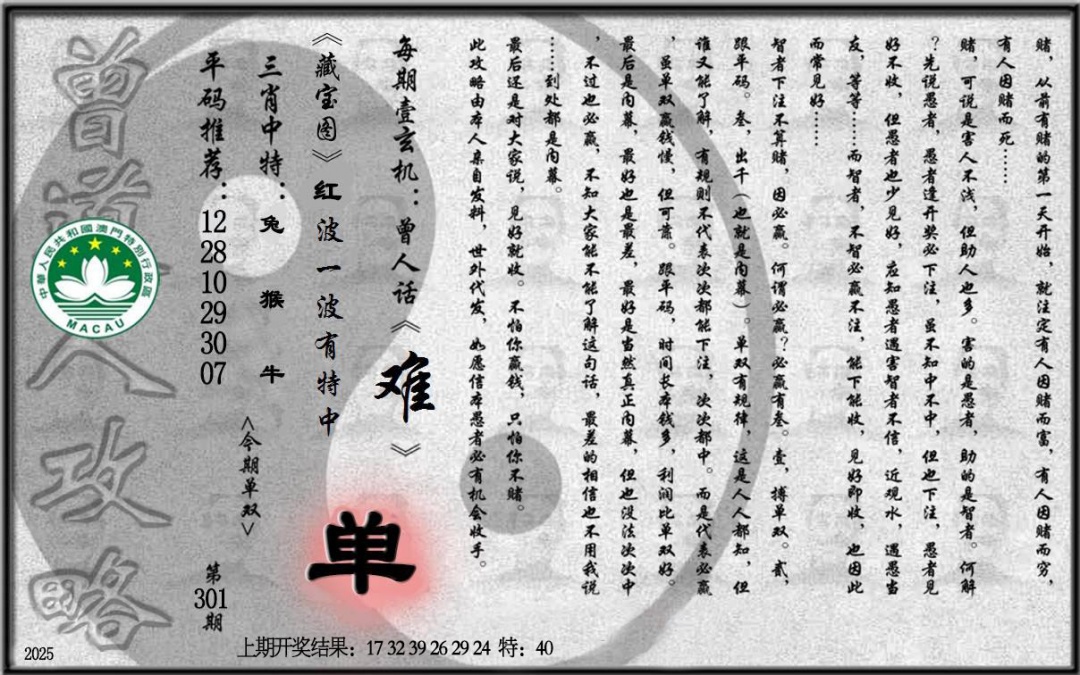 赌，从前有赌的第一天开始，就注定有人因赌而富，有人因赌而穷，
有人因赌而死……
赌，可说是害人不浅，但助人也多。害的是愚者，助的是智者。何解
？先说愚者，愚者逢开奖必下注，虽不知中不中，但也下注，愚者见
好不收，但愚者也少见好，应知愚者遇害智者不信，近观水，遇愚当
友，等等……而智者，不智必赢不注，能下能收，见好即收，也因此
而常见好……
智者下注不算赌，因必赢。何谓必赢？必赢有叁。壹，搏单双。贰，
跟单码。叁，出千（也就是内幕）。单双有规律，这是人人都知，但
谁又能了解，有规则不代表次次都能下注，次次都中。而是代表必赢
，虽单双赢钱慢，但可靠。跟单码，时间长本钱多，利润比单双好。
最后是内幕，最好也是最差，最好是当然真正内幕，但也没法次次中
，不过也必赢，不知大家能不能了解这句话，最差的相信也不用我说
……到处都是内幕。
最后还是对大家说，见好就收。不怕你赢钱，只怕你不赌。
此攻略由本人亲自发料，世外代发，如愿信本愚者必有机会收手。
每期壹玄机：曾人话《难》
《藏宝图》红波一波有特中
单
三肖中特：兔 猴 牛
<今期单双>
平码推荐：12 28 10 29 30 07
第301期
曾道人攻略
中華人民共和國澳門特別行政區
MACAU
2025
上期开奖结果：17 32 39 26 29 24 特：40